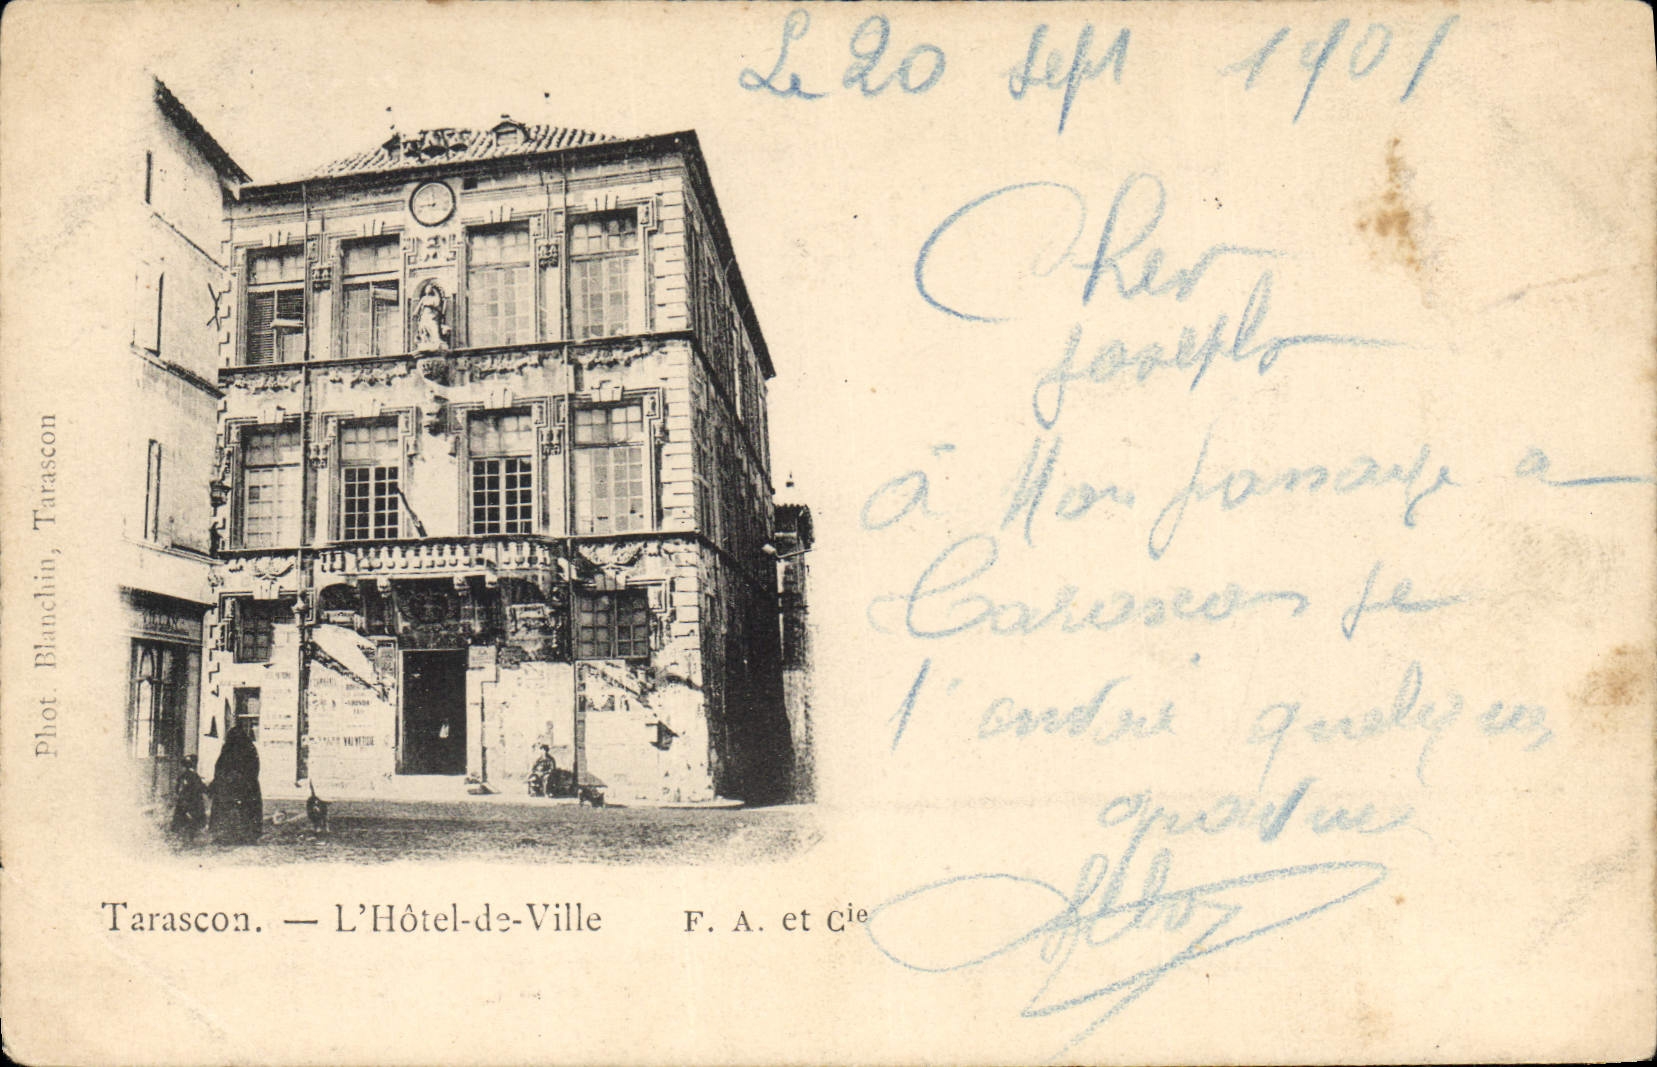 Le 20 Sept 1901
Cher
Joseph
à Mon passage a
Tarascon je
quelques
Phot. Blanchin, Tarascon
Tarascon. — L'Hôtel-de-Ville F. A. et Cie